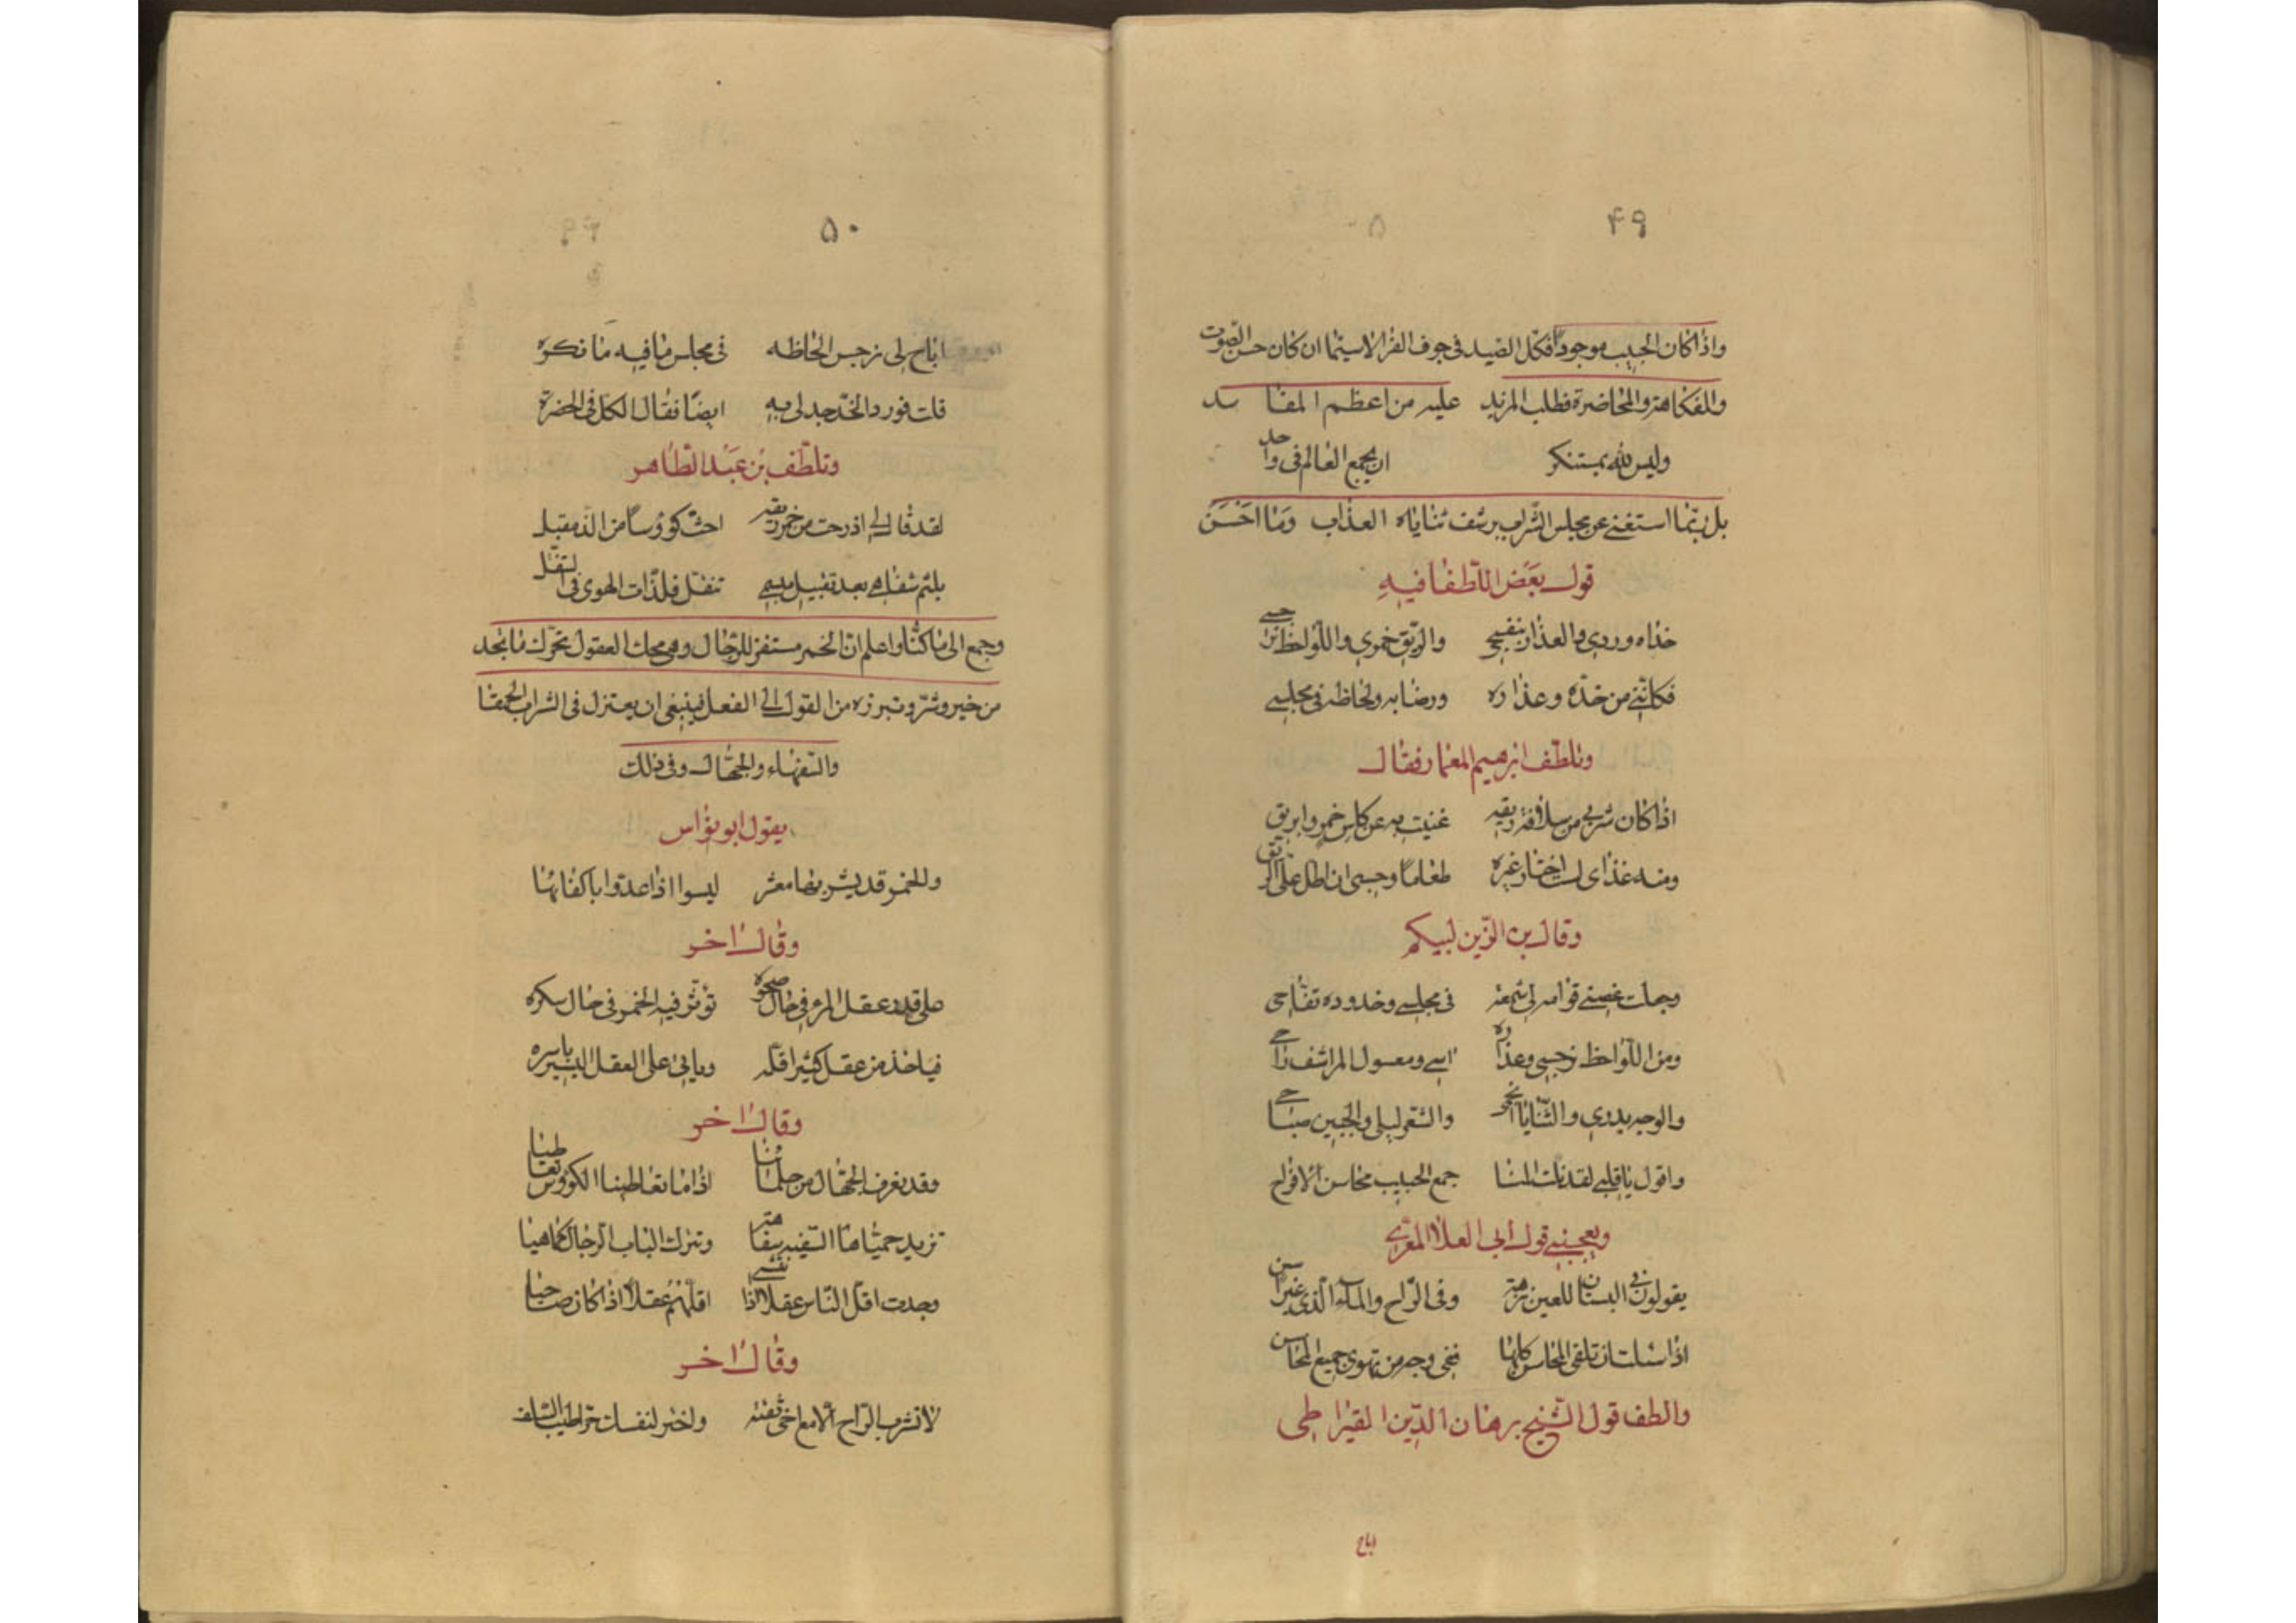 ۴۹
واذا كان الحبيب موجوداً فكل الصيد في جوف الفرا لا سيما ان كان حسن الصوت
والفكاهة والمحاضرة فطلب المزيد عليه من اعظم المفاسد
وليس لله بمستنكر ان يجمع العالم في واحد
بل ربّما استغنى عن مجلس الشراب برشف ثناياه العذاب وما احسن
قول بعض اللّطفا فيه
خداه وردي والعذار بنفسجي والريق خمري واللّواحظ نرجسي
فكانّني من خدّه وعذاره ورضابه ولحاظه في مجلسي
وتلطّف ابرهيم المعمار فقال
اذا كان شربي من سلافة ريقه غنيت به عن كاس خمر وابريق
ومنه غذاى لست اختار غيره طعاما وحسبى ان اظل على الريق
وقال بن الزّين لبيكم
وجلت غصني قوامه لي شمعه في مجلسي وخدوده تفّاحي
ومن اللّواحظ نرجسي وعذاره اسي ومعسول المراشف راحي
والوجه بدري والثّنايا انجمي والشعر ليلي والجبين صباحي
واقول يا قلبي لقد نلت المنا جمع الحبيب محاسن الافراح
ويعجبني قول ابي العلا المعرّي
يقولون في البستان للعين نزهة وفي الرّاح والماء الّذي غير آسن
اذا شئت ان تلقى المحاسن كلها ففي وجه من تهوى جميع المحاسن
والطف قول الشّيخ برهان الدّين القيراطى
اباح
۵۰
اباح لي نرجس الحاظه في مجلس ما فيه ما نكره
قلت فورد الخدّ جد لي به ايضا فقال الكل في الحضرة
وتلطّف بن عبد الظاهر
لقد قال لي اذ رحت من خمر ريقه احثّ كووسا من الذ مقبل
بلثم شفاهي بعد تقبيل مبسمي تنقل فلذّات الهوى في التنقّل
وجمع الى ما كنّا واعلم انّ الخمر مستفز للرّجال وهي محك العقول تحرّك ما تجد
من خير وشرّ وتبرزه من القول الى الفعل فينبغي ان يعتزل في الشراب الحمقا
والسّفهاء والجهّال وفي ذلك
يقول ابو نواس
وللخمر قد يشربها معشر ليسوا اذا عدّوا باكفائها
وقال اخر
على قدر عقل المرء في حال صحوه تؤثّر فيه الخمر في حال سكره
فياخذ من عقل كثير اقلّه وياتي على العقل اليسير باسره
وقال اخر
وقد يغرف الجهّال من حلمنا اذا ما تعاطينا الكؤوس تعاطينا
تزيد حميّاها السّفيه سفاهة وتترك الباب الرّجال كما هيا
وجدت اقلّ النّاس عقلا اذا انتشى اقلّهم عقلا اذا كان صاحيا
وقال اخر
لا تشرب الرّاح الّا مع اخي ثقة واختر لنفسك حرّا طيّب السّلف